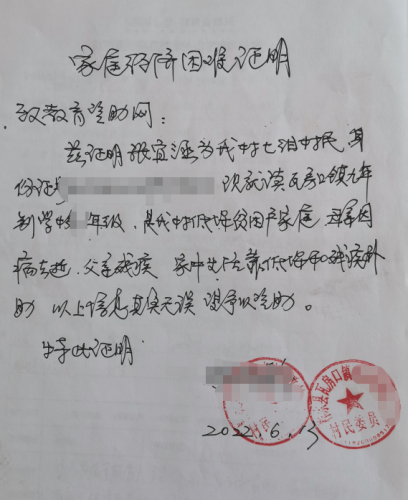 家庭经济困难证明
致教育资助网:
兹证明张宜涵为我村七泊村民 身
份证号 现就读瓦房口镇九年
制学校 年级,是我村低保贫困户家庭 母亲因
病去逝,父亲残疾 家中生活靠低保和残疾补
助 以上信息真实无误 望予以资助。
特此证明
2022.6.13
瓦房口镇
村民委员